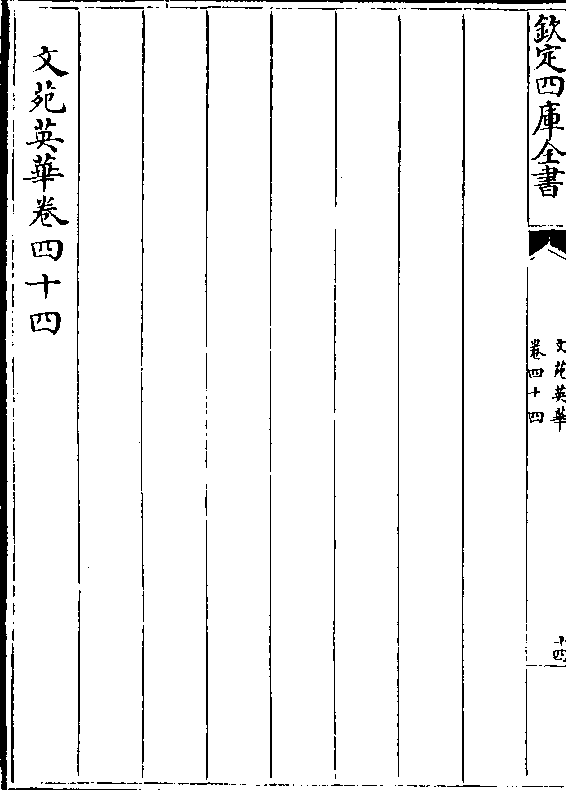 欽定四庫全書
文苑英華
卷四十四
十四
文苑英華卷四十四